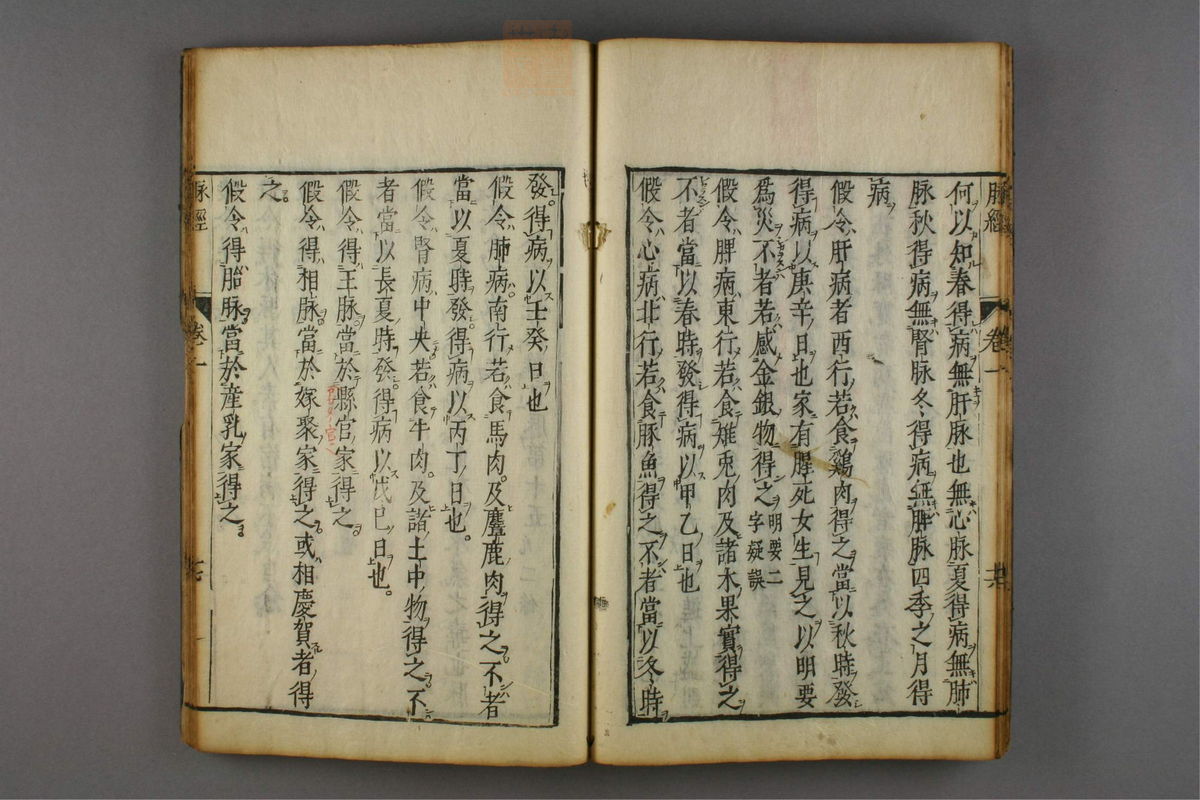 脉經
卷一
何以知春得病無肝脉也無心脉夏得病無肺
脉秋得病無腎脉冬得病無脾脉四季之月得
病
假令肝病者西行若食鷄肉得之當以秋時發
得病以庚辛日也家有腥死女生見之以明要
爲災不者若感金銀物得之明要二字疑誤
假令脾病東行若食雉兎肉及諸木果實得之
不者當以春時發得病以甲乙日也
假令心病北行若食豚魚得之不者當以冬時
發得病以壬癸日也
假令肺病南行若食馬肉及麞鹿肉得之不者
當以夏時發得病以丙丁日也
假令腎病中央若食牛肉及諸土中物得之不
者當以長夏時發得病以戊巳日也
假令得王脉當於縣官家得之
假令得相脉當於嫁聚家得之或相慶賀者得
之
假令得胎脉當於産乳家得之
脉經
卷一